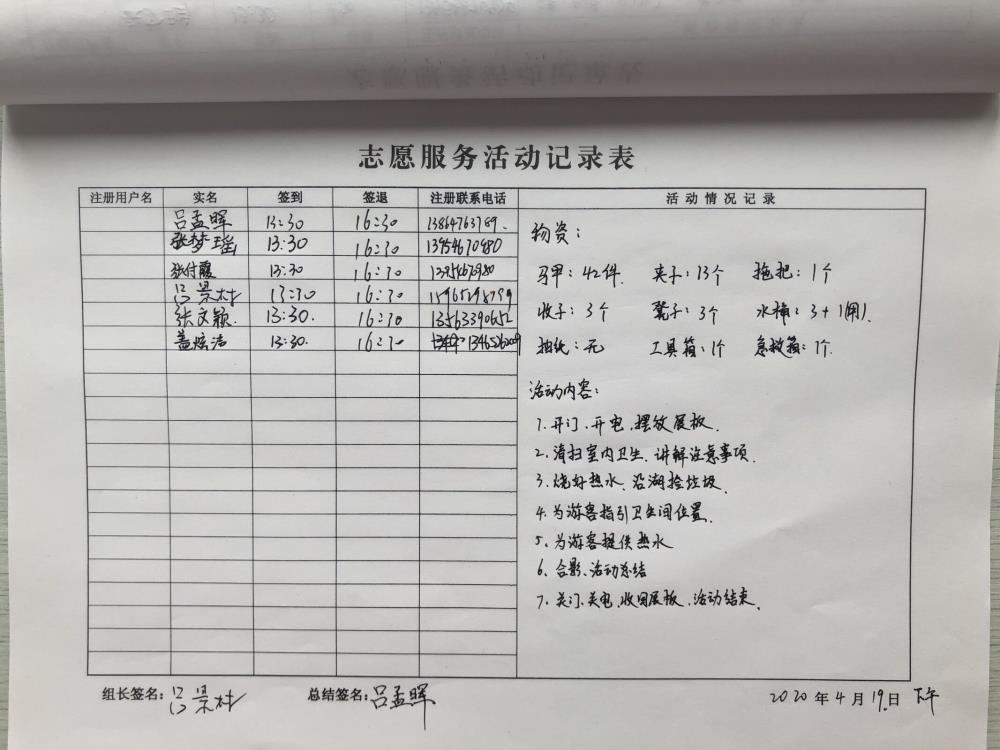 志愿服务活动记录表
注册用户名 实名 签到 签退 注册联系电话 活动情况记录
吕孟晖 13:30 16:30 13864763789.
张梦瑶 13:30 16:30 13954670980
张付霞 13:30 16:30
吕景村 13:30 16:30
张文颖. 13:30. 16:30 13563390652
盖炫洁 13:30. 16:30
物资:
马甲: 42件. 夹子: 13个 拖把: 1个
收子: 3个 凳子: 3个 水桶: 3+1(用).
抽纸: 无 工具箱: 1个 急救箱: 1个.
活动内容:
1. 开门、开电、摆放展板.
2. 清扫室内卫生、讲解注意事项.
3. 烧好热水、沿湖捡垃圾.
4. 为游客指引卫生间位置.
5. 为游客提供热水
6. 合影、活动总结
7. 关门、关电、收回展板、活动结束.
组长签名: 吕景村 总结签名: 吕孟晖 2020年4月19日 下午